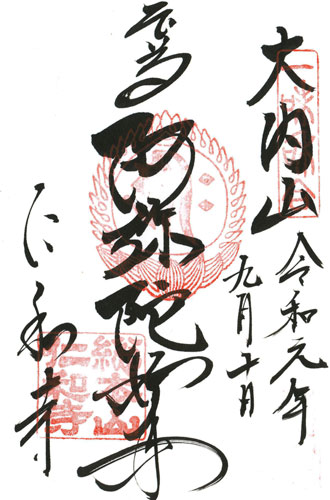 大内山
令和元年
九月十日
阿弥陀如来
仁和寺
総本山
仁和寺